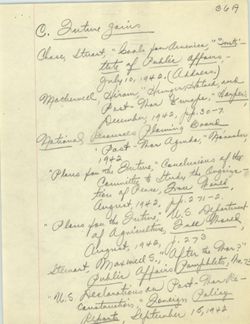 369
C. Future gains
Chase, Stuart, "Goals for America," "Insti-
tute of Public Affairs,
July 10, 1942, (Address)
Motherwell Hiram, "Hunger, Hatred, and
Post-War Europe," Harper's
December, 1942, pp. 30-7
National Resources Planning Board
"Post-War Agenda," November,
1942
"Plans for the Future," Conclusions of the
Committee to Study the Organiza-
tion of Peace, Free World,
August, 1942, p. 271-2.
"Plans for the Future," U.S. Department
of Agriculture, Free World
August, 1942, p. 273
Stewart Maxwell S., "After the War?"
Public Affairs Pamphlets, No. 73
"U.S. Declarations on Post-War Re-
construction," Foreign Policy
Reports, September 15, 1942